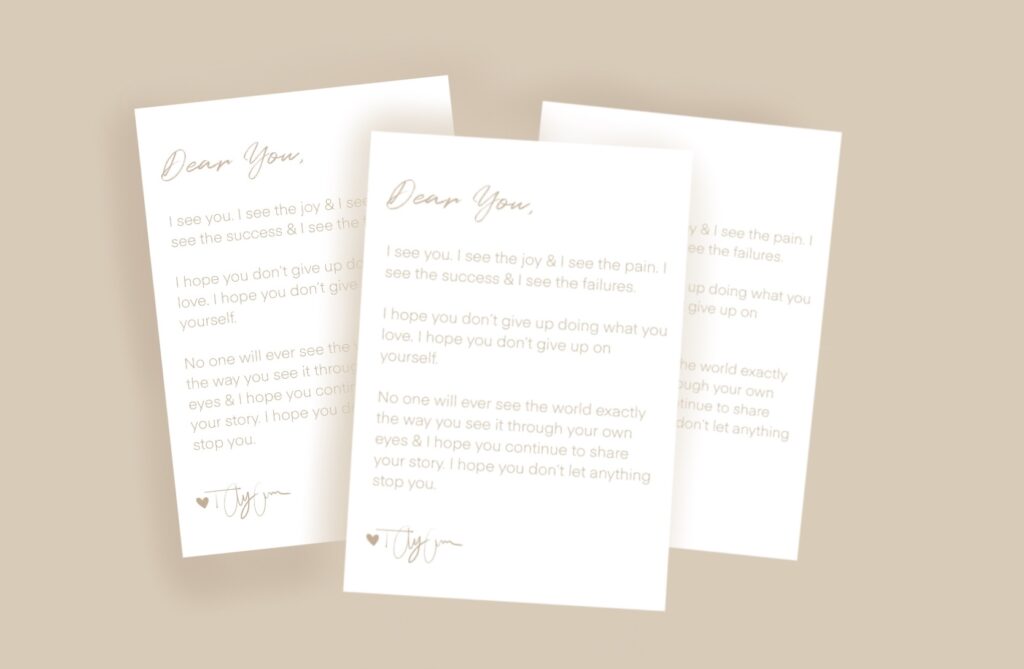 Dear You,
I see you. I see the joy & I see
see the success & I see the
I hope you don't give up
love. I hope you don't give
yourself.
No one will ever see the
the way you see it through
eyes & I hope you
your story. I hope you
stop you.
Dear You,
I see you. I see the joy & I see the pain. I
see the success & I see the failures.
I hope you don't give up doing what you
love. I hope you don't give up on
yourself.
No one will ever see the world exactly
the way you see it through your own
eyes & I hope you continue to share
your story. I hope you don't let anything
stop you.
& I see the pain. I
the failures.
up doing what you
give up on
the world exactly
your own
to share
don't let anything